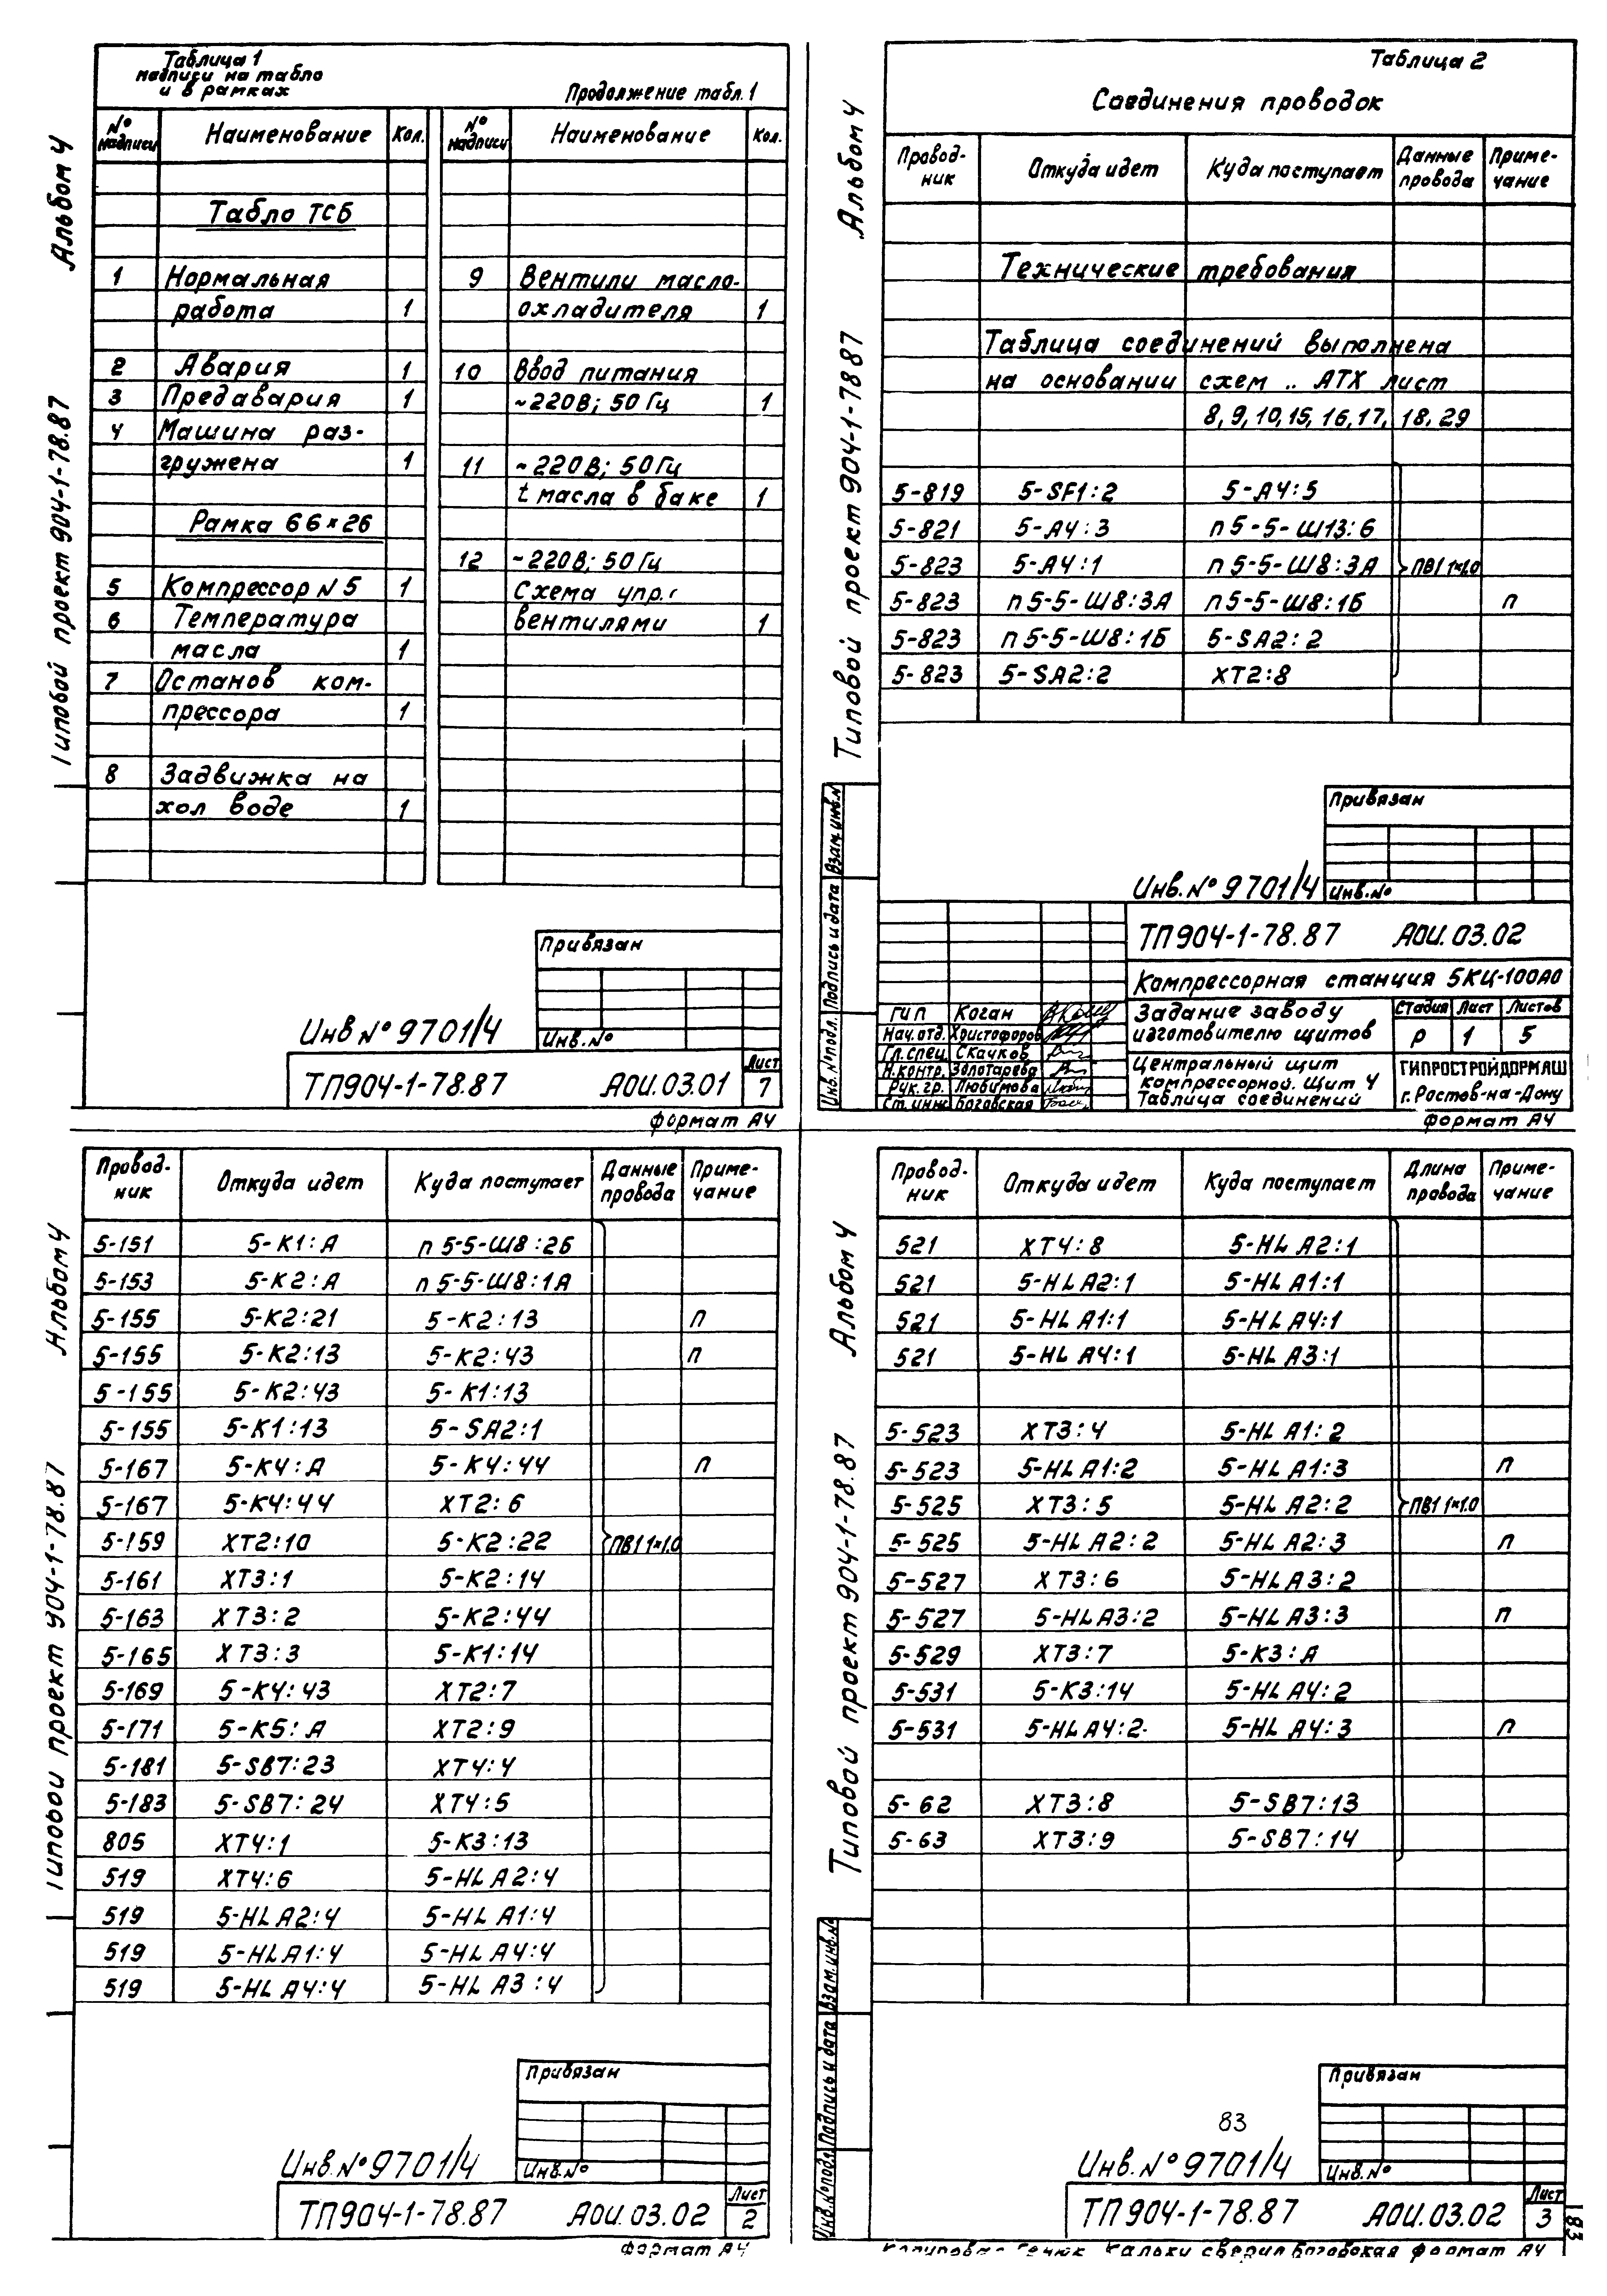 Альбом 4
Типовой проект 904-1-78.87
Таблица 1
надписи на табло
и в рамках
Продолжение табл. 1
№ надписи Наименование Кол. № надписи Наименование Кол.
Табло ТСБ
1 Нормальная
работа 1
2 Авария 1
3 Предавария 1
4 Машина раз-
гружена 1
Рамка 66×26
5 Компрессор N5 1
6 Температура
масла 1
7 Останов ком-
прессора 1
8 Задвижка на
хол воде 1
9 Вентили масло-
охладителя 1
10 Ввод питания
~220В; 50Гц 1
11 ~220В; 50Гц
t масла в баке 1
12 ~220В; 50Гц
Схема упр.
вентилями 1
Привязан
Инв.№
Инв № 9701/4
ТП904-1-78.87 АОИ.03.01 Лист 7
формат А4
Альбом 4
Типовой проект 904-1-78 87
Таблица 2
Соединения проводок
Провод-ник Откуда идет Куда поступает Данные провода Приме-чание
Технические требования
Таблица соединений выполнена
на основании схем .. АТХ лист
8, 9, 10, 15, 16, 17, 18, 29
5-819 5-SF1:2 5-А4:5
5-821 5-А4:3 п5-5-Ш13:6
5-823 5-А4:1 п5-5-Ш8:3А ПВ1 1×1.0
5-823 п5-5-Ш8:3А п5-5-Ш8:1Б п
5-823 п5-5-Ш8:1Б 5-SA2:2
5-823 5-SA2:2 ХТ2:8
Привязан
Инв.№
Инв.№ 9701/4
Взам.инв.№
Подпись и дата
Инв.№подл.
ТП904-1-78.87 АОИ.03.02
Компрессорная станция 5КЦ-100АО
ГИП Коган
Нач.отд. Христофоров
Гл.спец. Скачков
Н.контр. Золотарева
Рук.гр. Любимова
Ст.инж Боговская
Задание заводу
изготовителю щитов
Стадия Лист Листов
Р 1 5
Центральный щит
компрессорной. Щит 4
Таблица соединений
ГИПРОСТРОЙДОРМАШ
г.Ростов-на-Дону
формат А4
Альбом 4
Типовой проект 904-1-78.87
Провод-ник Откуда идет Куда поступает Данные провода Приме-чание
5-151 5-К1:А п5-5-Ш8:2Б
5-153 5-К2:А п5-5-Ш8:1А
5-155 5-К2:21 5-К2:13 п
5-155 5-К2:13 5-К2:43 п
5-155 5-К2:43 5-К1:13
5-155 5-К1:13 5-SA2:1
5-167 5-К4:А 5-К4:44 п
5-167 5-К4:44 ХТ2:6
5-159 ХТ2:10 5-К2:22 ПВ1 1×1.0
5-161 ХТ3:1 5-К2:14
5-163 ХТ3:2 5-К2:44
5-165 ХТ3:3 5-К1:14
5-169 5-К4:43 ХТ2:7
5-171 5-К5:А ХТ2:9
5-181 5-SB7:23 ХТ4:4
5-183 5-SB7:24 ХТ4:5
805 ХТ4:1 5-К3:13
519 ХТ4:6 5-HLA2:4
519 5-HLA2:4 5-HLA1:4
519 5-HLA1:4 5-HLA4:4
519 5-HLA4:4 5-HLA3:4
Привязан
Инв.№
Инв.№ 9701/4
ТП904-1-78.87 АОИ.03.02 Лист 2
формат А4
Альбом 4
Типовой проект 904-1-78.87
Провод-ник Откуда идет Куда поступает Длина провода Приме-чание
521 ХТ4:8 5-HLA2:1
521 5-HLA2:1 5-HLA1:1
521 5-HLA1:1 5-HLA4:1
521 5-HLA4:1 5-HLA3:1
5-523 ХТ3:4 5-HLA1:2
5-523 5-HLA1:2 5-HLA1:3 п
5-525 ХТ3:5 5-HLA2:2 ПВ1 1×1.0
5-525 5-HLA2:2 5-HLA2:3 п
5-527 ХТ3:6 5-HLA3:2
5-527 5-HLA3:2 5-HLA3:3 п
5-529 ХТ3:7 5-К3:А
5-531 5-К3:14 5-HLA4:2
5-531 5-HLA4:2 5-HLA4:3 п
5-62 ХТ3:8 5-SB7:13
5-63 ХТ3:9 5-SB7:14
Привязан
Инв.№
83
Инв.№ 9701/4
Взам.инв.№
Подпись и дата
Инв.№подл.
ТП904-1-78.87 АОИ.03.02 Лист 3
83
Кальки сверил Боговская формат А4